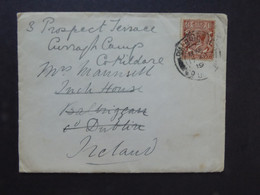 3 Prospect Terrace
Curragh Camp
Co Kildare
Mrs Maunsell
Inch House
Balbriggan
Co Dublin
Ireland
19